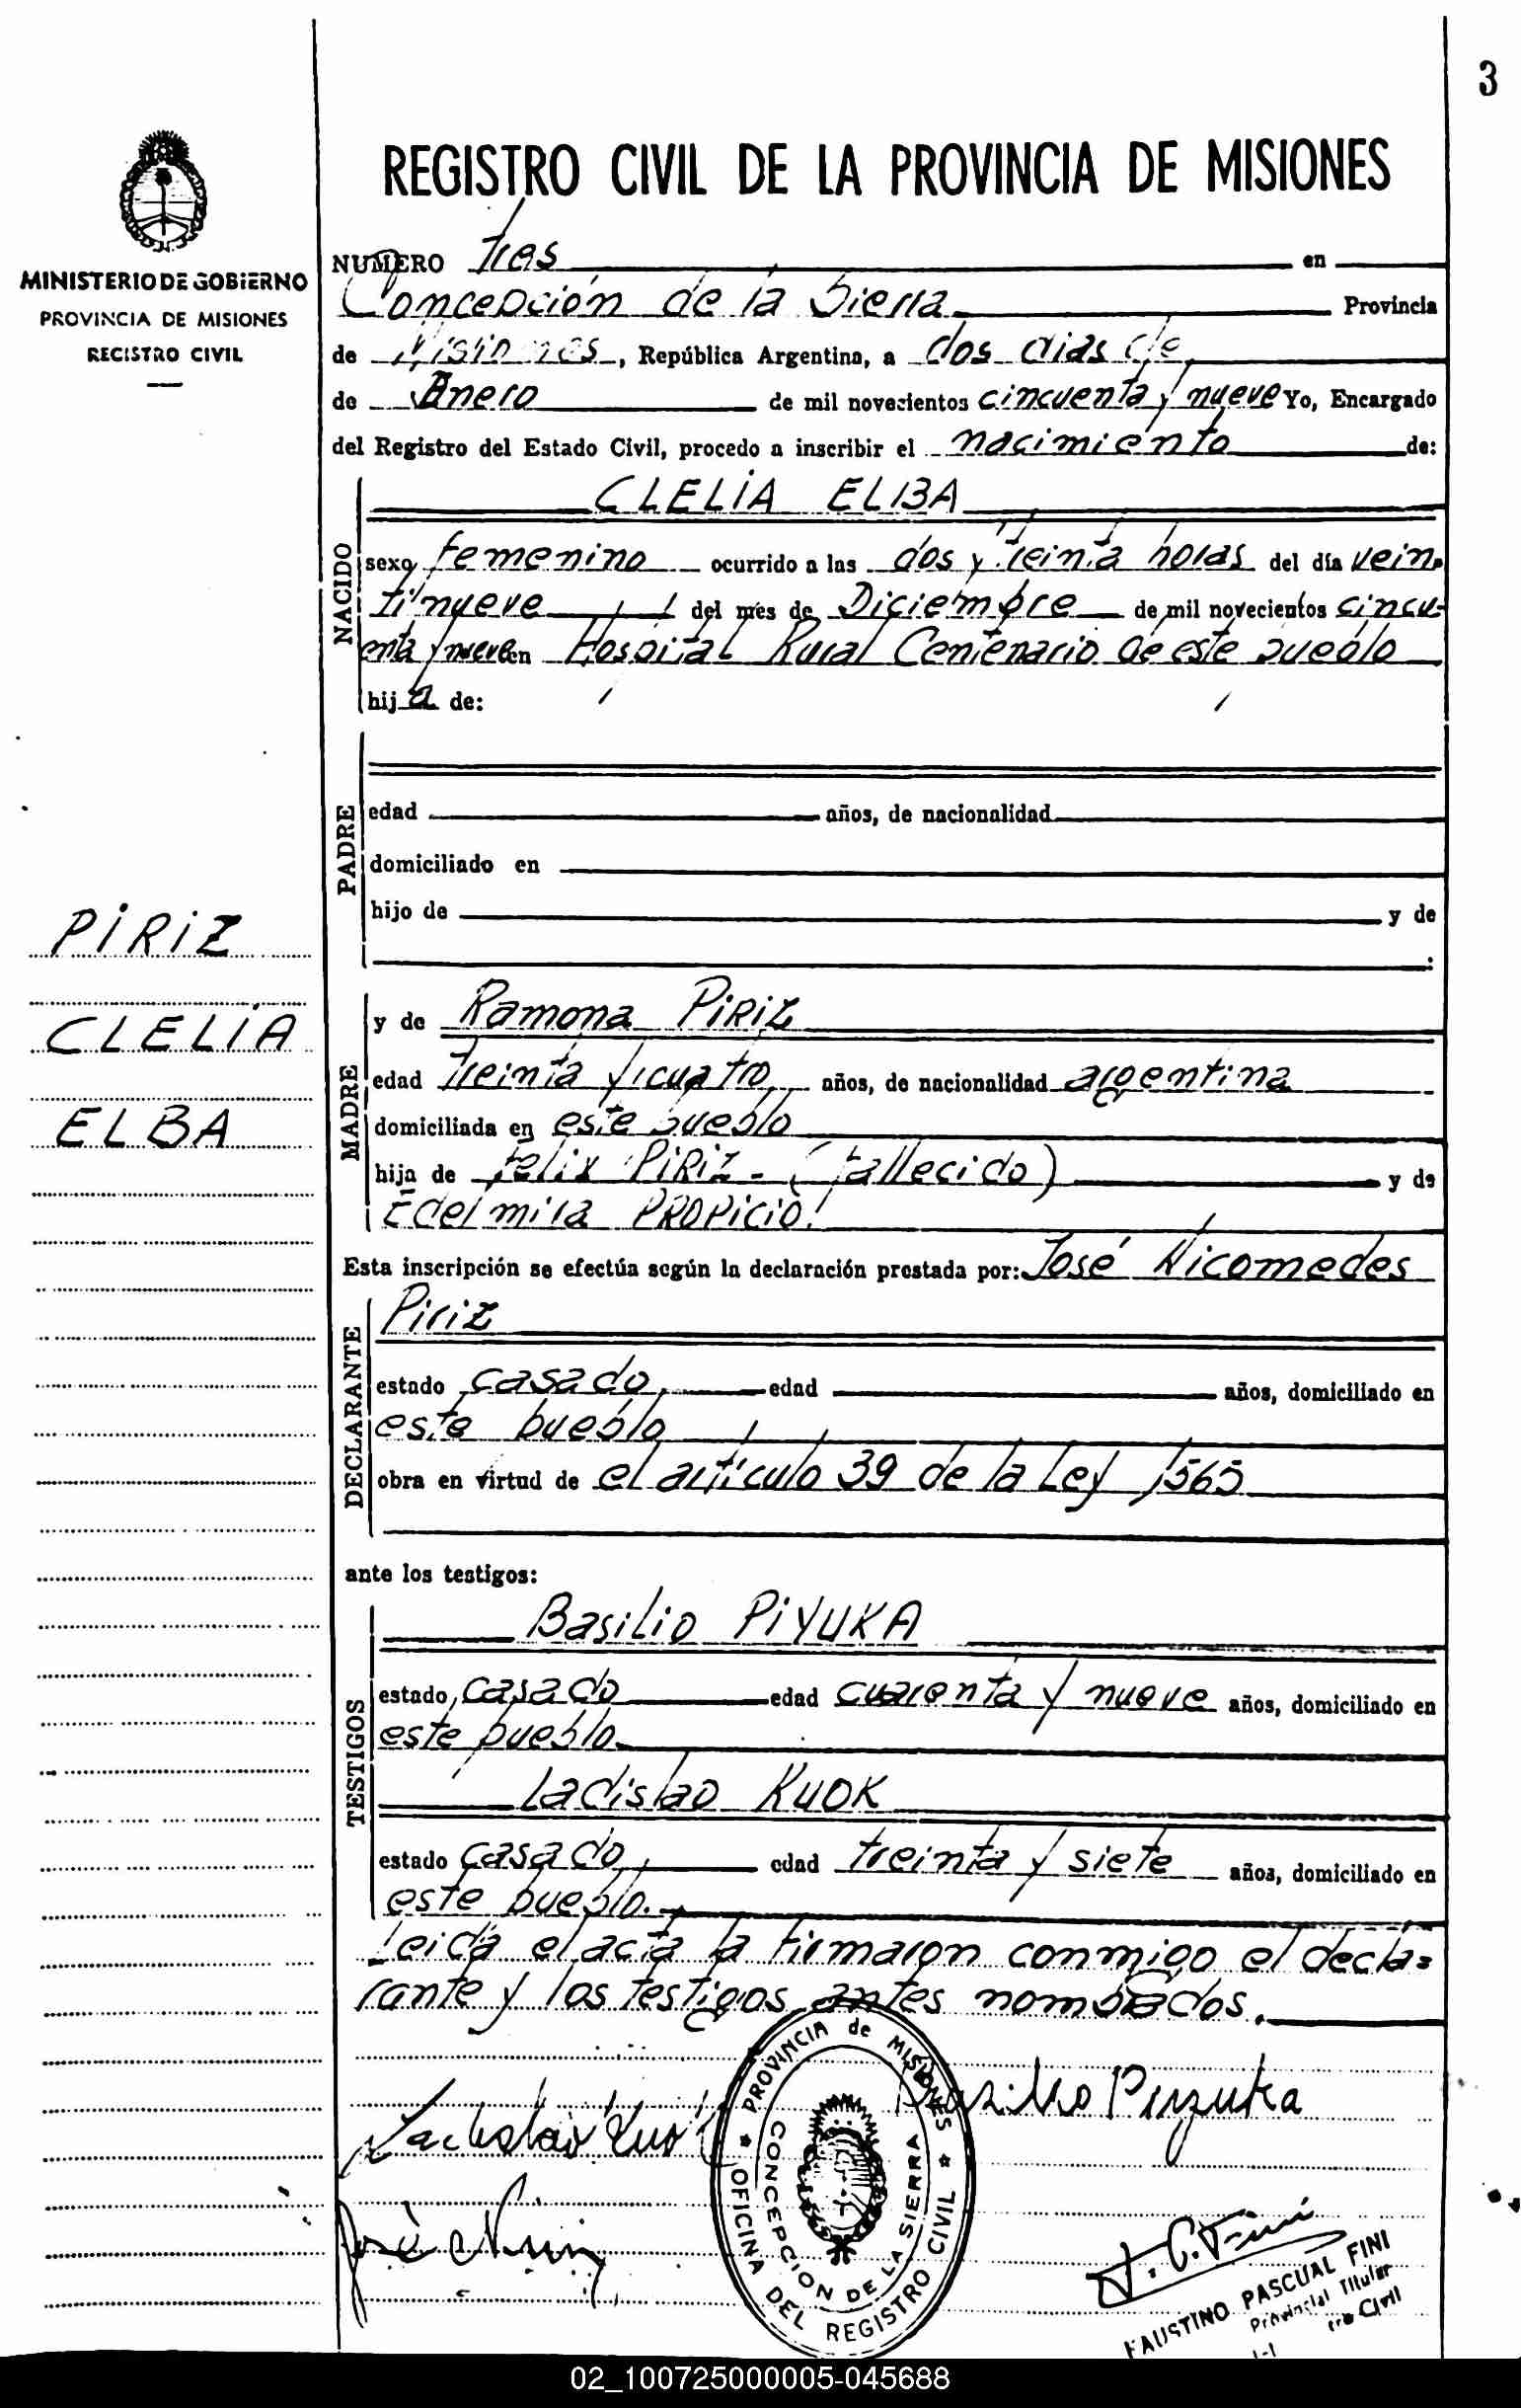 3
REGISTRO CIVIL DE LA PROVINCIA DE MISIONES
MINISTERIO DE GOBIERNO
PROVINCIA DE MISIONES
REGISTRO CIVIL
NUMERO tres en
Concepción de la Sierra Provincia
de Misiones, República Argentina, a dos dias de
de Enero de mil novecientos cincuenta y nueve Yo, Encargado
del Registro del Estado Civil, procedo a inscribir el nacimiento de:
NACIDO
CLELIA ELBA
sexo femenino ocurrido a las dos y treinta horas del día vein-
tinueve del mes de Diciembre de mil novecientos cincu-
enta y nueve en Hospital Rural Centenario de este pueblo
hija de:
PADRE
edad años, de nacionalidad
domiciliado en
hijo de y de
:
PIRIZ
CLELIA
ELBA
MADRE
y de Ramona PIRIZ
edad treinta y cuatro años, de nacionalidad argentina
domiciliada en este pueblo
hija de Felix PIRIZ - (fallecido) y de
Edelmira PROPICIO.
Esta inscripción se efectúa según la declaración prestada por: José Nicomedes
DECLARANTE
Piriz
estado casado edad años, domiciliado en
este pueblo
obra en virtud de el artículo 39 de la Ley 1565
ante los testigos:
TESTIGOS
Basilio PIYUKA
estado casado edad cuarenta y nueve años, domiciliado en
este pueblo.
Ladislao KUOK
estado casado edad treinta y siete años, domiciliado en
este pueblo.
Leida el acta la firmaron conmigo el decla-
rante y los testigos antes nombrados.
PROVINCIA de MISIONES
OFICINA DEL REGISTRO CIVIL
CONCEPCION DE LA SIERRA
Basilio Piyuka
FAUSTINO PASCUAL FINI
Provincial Titular
Civil
02_100725000005-045688